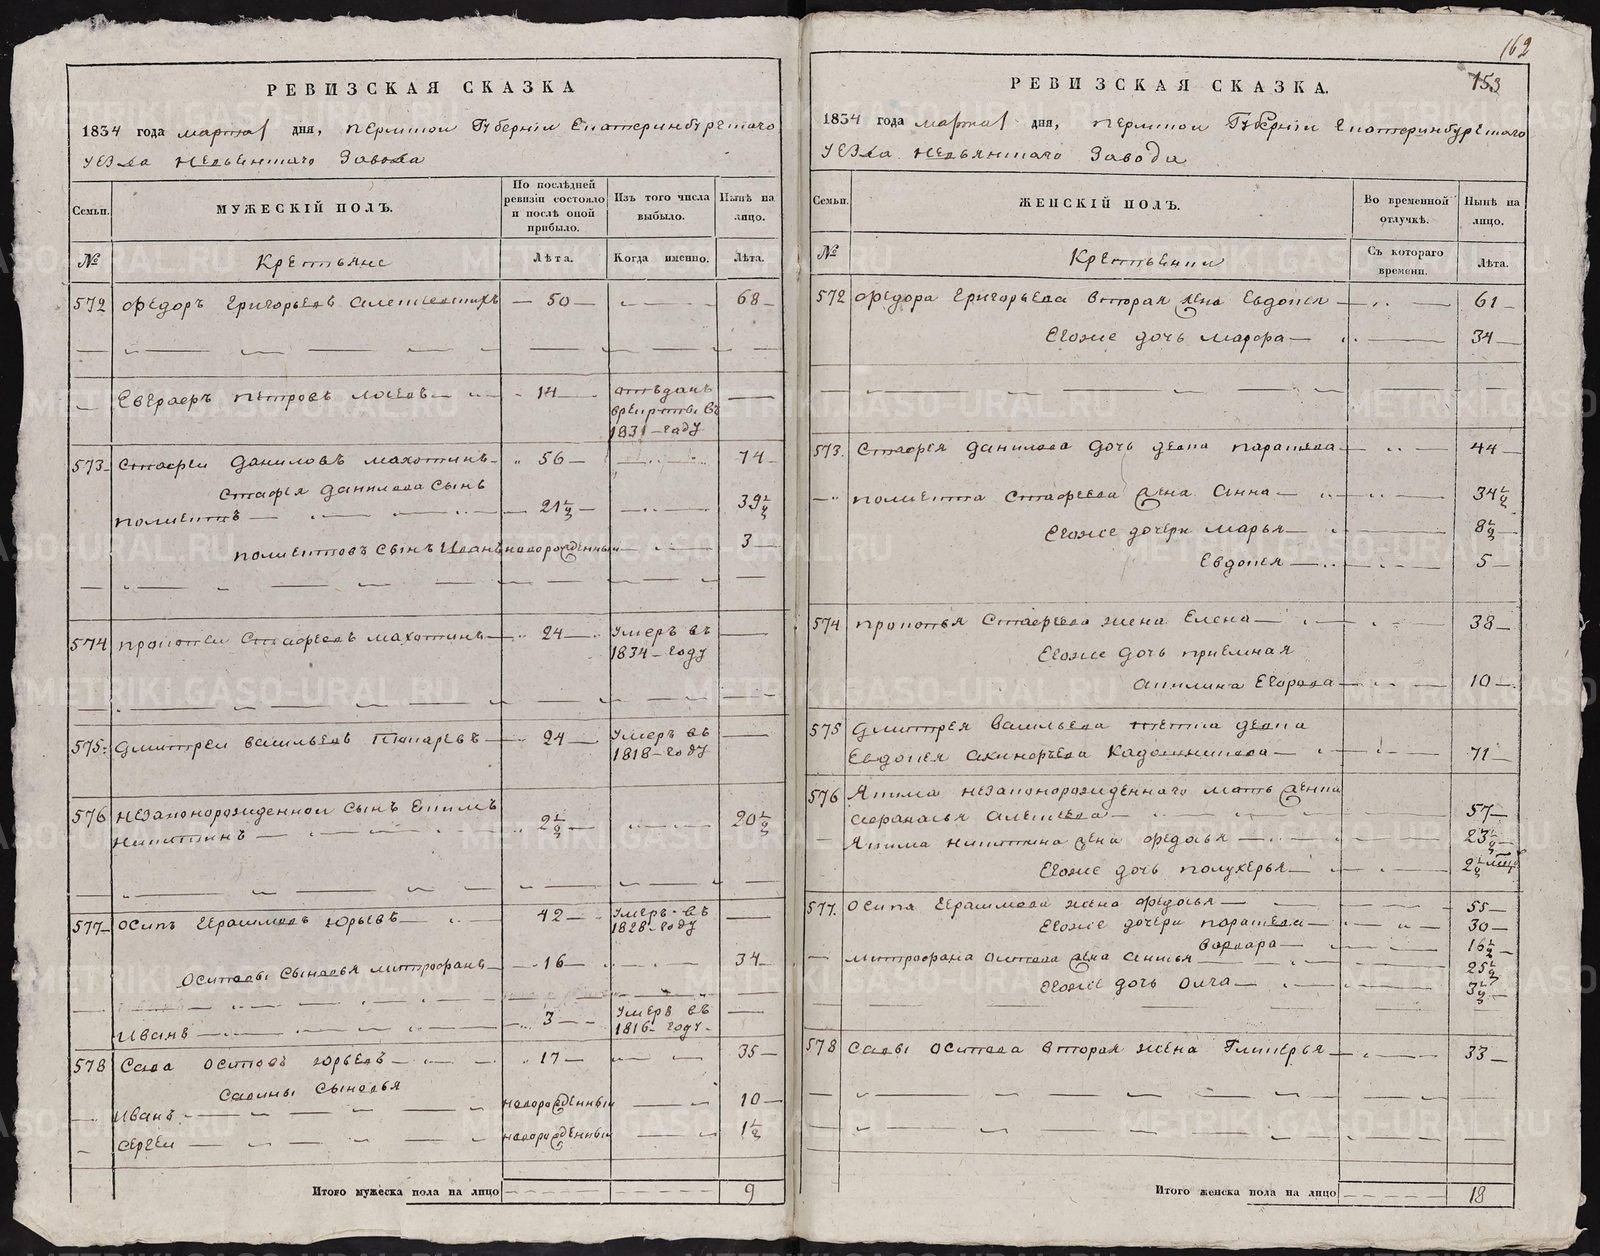 162
153
РЕВИЗСКАЯ СКАЗКА
1834 года марта 1 дня, Пермской Губернии Екатеринбургскаго
уезда Невьянскаго Завода
Семьи. МУЖЕСКІЙ ПОЛЪ. По послѣдней ревизіи состояло и послѣ оной прибыло. Изъ того числа выбыло. Нынѣ на лицо.
№ Крестьяне Лѣта. Когда именно. Лѣта.
572 Федоръ Григорьевъ 50 68
Евграфъ Петровъ 14 отъданъ
врекруты въ
1831 году
573 Стафеи Даниловъ Махотинъ 56 74
Стафея Данилова сынъ
Полиектъ 21½ 39½
Полиектовъ сынъ Иванъ новорожденный 3
574 Прокопеи Стафеевъ Махотинъ 24 Умеръ въ
1834 году
575 Дмитреи Васильевъ 24 Умеръ въ
1818 году
576 Незаконорожденной сынъ Екимъ
Никитинъ 2½ 20½
577 Осипъ Герасимовъ Юрьевъ 42 Умеръ въ
1828 году
Осиповы сыновья Митрофанъ 16 34
Иванъ 3 Умеръ въ
1816 году
578 Сава Осиповъ Юрьевъ 17 35
Савины сыновья
Иванъ новорожденный 10
Сергеи новорожденный 1½
Итого мужеска пола на лицо 9
РЕВИЗСКАЯ СКАЗКА.
1834 года марта 1 дня, Пермской Губернии Екатеринбургскаго
уезда Невьянскаго Завода
Семьи. ЖЕНСКІЙ ПОЛЪ. Во временной отлучкѣ. Нынѣ на лицо.
№ Крестьянки Съ котораго времени. Лѣта.
572 Федора Григорьева вторая жена Евдокея 61
Егоже дочь Марфа 34
573. Стафея Данилова дочь девка Парасева 44
Полиекта Стафеева жена Анна 34½
Егоже дочери Марья 8½
Евдокея 5
574 Прокопья Стафеева жена Елена 38
Егоже дочь приемная
Акилина Егорова 10
575 Дмитрея Васильева тетка девка
Евдокея 71
576 Якима незаконорожденнаго мать женка
Афанасья Алексеева 57
Якима Никитина жена Федосья 23½
Егоже дочь Полухерья 2½
577. Осипа Герасимова жена Федосья 55
Егоже дочери Парасева 30
Варвара 16½
Митрофана Осипова жена Анисья 25½
Егоже дочь Олга 3½
578 Савы Осипова вторая жена Гликерья 33
Итого женска пола на лицо 18
METRIKI.GASO-URAL.RU